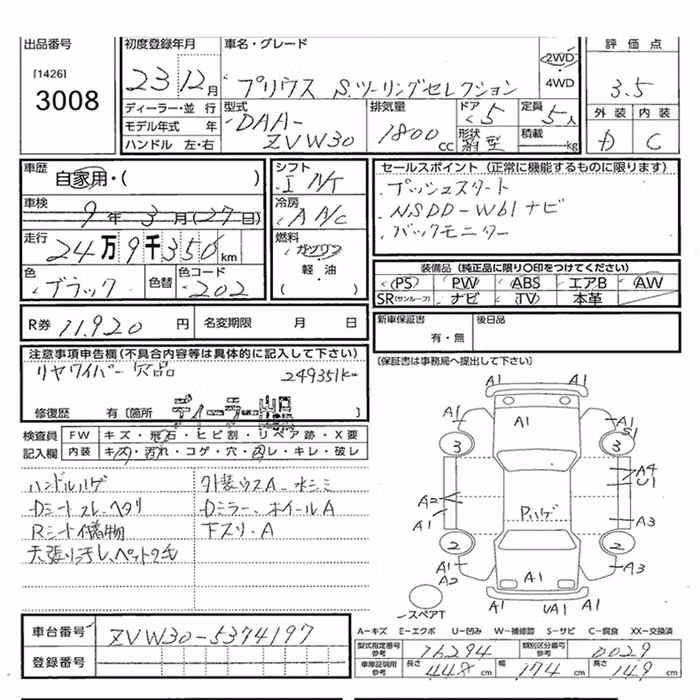 出品番号
[1426]
3008
初度登録年月
23年12月
車名・グレード
プリウス S.ツーリングセレクション
2WD
・4WD
評価点
3.5
外装 内装
D C
ディーラー・並行
モデル年式 年
ハンドル 左・右
型式
DAA-
ZVW30
排気量
1800cc
ドア 5
形状
定員 5人
積載 kg
車歴
自家用・( )
車検
9年3月(27日)
走行
24万9千350km
色
ブラック
色替
色コード
202
シフト
冷房
燃料
ガソリン
・
軽・油
セールスポイント(正常に機能するものに限ります)
・プッシュスタート
・NSDD-W61ナビ
・バックモニター
装備品(純正品に限り〇印をつけてください)
PS PW ABS エアB AW
SR(サンルーフ) ナビ TV 本革
R券 11,920円 名変期限 月 日
新車保証書
有・無
後日品
(保証書は事務局へ提出して下さい)
注意事項申告欄(不具合内容等は具体的に記入して下さい)
リヤワイパー欠品
249351Km
修復歴 有〔箇所 〕
検査員
記入欄
FW キズ・飛石・ヒビ割・リペア跡・X要
内装 キズ・汚れ・コゲ・穴・凹レ・キレ・破レ
ハンドルハゲ
外装ウスA、水シミ
Dシートスレ、ヘタリ
Dミラー、ホイールA
Rシート
下スリ・A
天張り汚レ、ペット
A1
A1
A1
A1
S1
3
3
A4
U1
A2
A1
A3
Pハゲ
2
2
A1
A2
A1
A1
A3
UA1
A1
スペアT
A-キズ E-エクボ U-凹み W-補修跡 S-サビ C-腐食 XX-交換済
車台番号
ZVW30-5374197
登録番号
型式指定番号
参考
16294
類別区分番号
参考
0029
車庫証明用
参考
長さ 448cm 幅 174cm 高さ 149cm